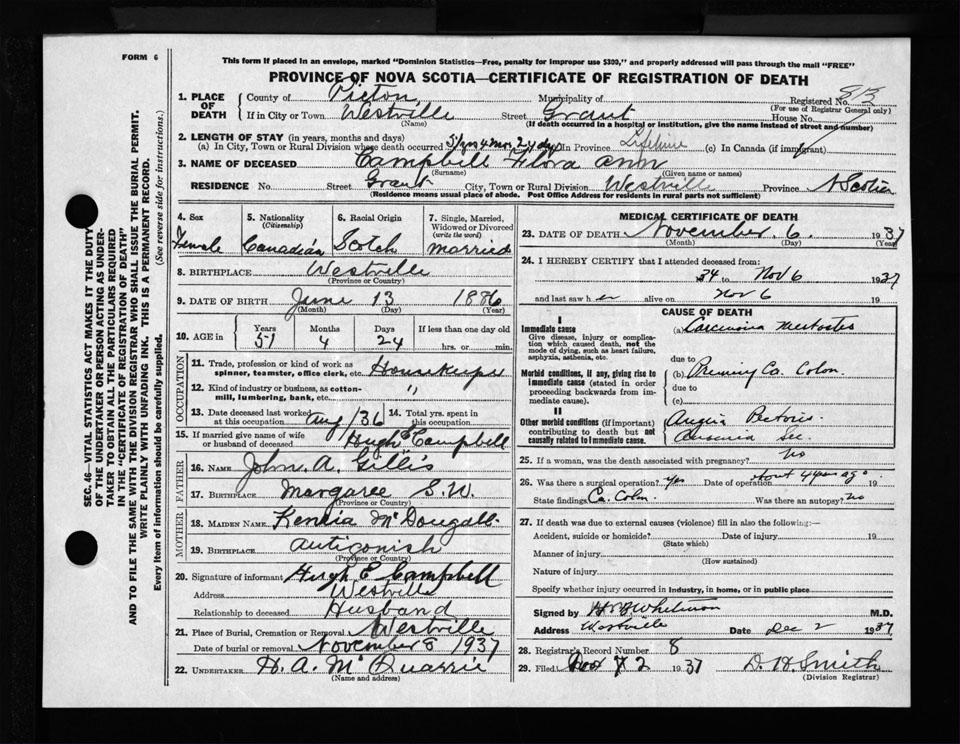 FORM 6
This form if placed in an envelope, marked "Dominion Statistics—Free, penalty for improper use $300," and properly addressed will pass through the mail "FREE"
PROVINCE OF NOVA SCOTIA—CERTIFICATE OF REGISTRATION OF DEATH
1. PLACE OF DEATH
County of Pictou Municipality of Registered No. 813
(For use of Registrar General only)
If in City or Town Westville Street Grant House No.
(Name) (If death occurred in a hospital or institution, give the name instead of street and number)
2. LENGTH OF STAY (in years, months and days)
(a) In City, Town or Rural Division where death occurred 51 yrs 4 mos 24 dys (b) In Province Lifetime (c) In Canada (if immigrant)
3. NAME OF DECEASED Campbell Flora Ann
(Surname) (Given name or names)
RESIDENCE No. Street Grant City, Town or Rural Division Westville Province N Scotia
(Residence means usual place of abode. Post Office Address for residents in rural parts not sufficient)
4. Sex Female
5. Nationality (Citizenship) Canadian
6. Racial Origin Scotch
7. Single, Married, Widowed or Divorced (write the word) Married
8. BIRTHPLACE Westville
(Province or Country)
9. DATE OF BIRTH June 13 1886
(Month) (Day) (Year)
10. AGE in Years 51 Months 4 Days 24 If less than one day old hrs. or min.
OCCUPATION
11. Trade, profession or kind of work as spinner, teamster, office clerk, etc. Housekeeper
12. Kind of industry or business, as cotton-mill, lumbering, bank, etc.
13. Date deceased last worked at this occupation Aug/36
14. Total yrs. spent in this occupation
15. If married give name of wife or husband of deceased Hugh E Campbell
FATHER
16. NAME John A. Gillis
17. BIRTHPLACE Margaree S.W.
(Province or Country)
MOTHER
18. MAIDEN NAME McDougall
19. BIRTHPLACE Antigonish
(Province or Country)
20. Signature of informant Hugh E Campbell
Address Westville
Relationship to deceased Husband
21. Place of Burial, Cremation or Removal Westville
Date of burial or removal November 8 1937
22. UNDERTAKER H. A. McQuarrie
(Name and address)
MEDICAL CERTIFICATE OF DEATH
23. DATE OF DEATH November 6. 1937
(Month) (Day) (Year)
24. I HEREBY CERTIFY that I attended deceased from:
34 to Nov 6 1937
and last saw her alive on Nov 6 19
CAUSE OF DEATH
I
Immediate cause
Give disease, injury or complication which caused death, not the mode of dying, such as heart failure, asphyxia, asthenia, etc.
(a) Carcinoma
due to
Morbid conditions, if any, giving rise to immediate cause (stated in order proceeding backwards from immediate cause).
(b) Primary Ca. Colon.
due to
(c)
II
Other morbid conditions (if important) contributing to death but not causally related to immediate cause.
Angina Pectoris
Anaemia Sec.
25. If a woman, was the death associated with pregnancy? No
26. Was there a surgical operation? Yes Date of operation about 4 years ago 19
State findings Ca. Colon. Was there an autopsy? No
27. If death was due to external causes (violence) fill in also the following:—
Accident, suicide or homicide? Date of injury 19
(State which)
Manner of injury
(How sustained)
Nature of injury
Specify whether injury occurred in industry, in home, or in public place
Signed by Whitman M.D.
Address Westville Date Dec 2 1937
28. Registrar's Record Number 8
29. Filed Dec 2 1937 D. H. Smith
(Division Registrar)
SEC. 46—VITAL STATISTICS ACT MAKES IT THE DUTY
OF THE UNDERTAKER OR PERSON ACTING AS UNDER-
TAKER TO OBTAIN ALL THE PARTICULARS REQUIRED
IN THE "CERTIFICATE OF REGISTRATION OF DEATH"
AND TO FILE THE SAME WITH THE DIVISION REGISTRAR WHO SHALL ISSUE THE BURIAL PERMIT.
WRITE PLAINLY WITH UNFADING INK. THIS IS A PERMANENT RECORD.
Every item of information should be carefully supplied. (See reverse side for instructions.)